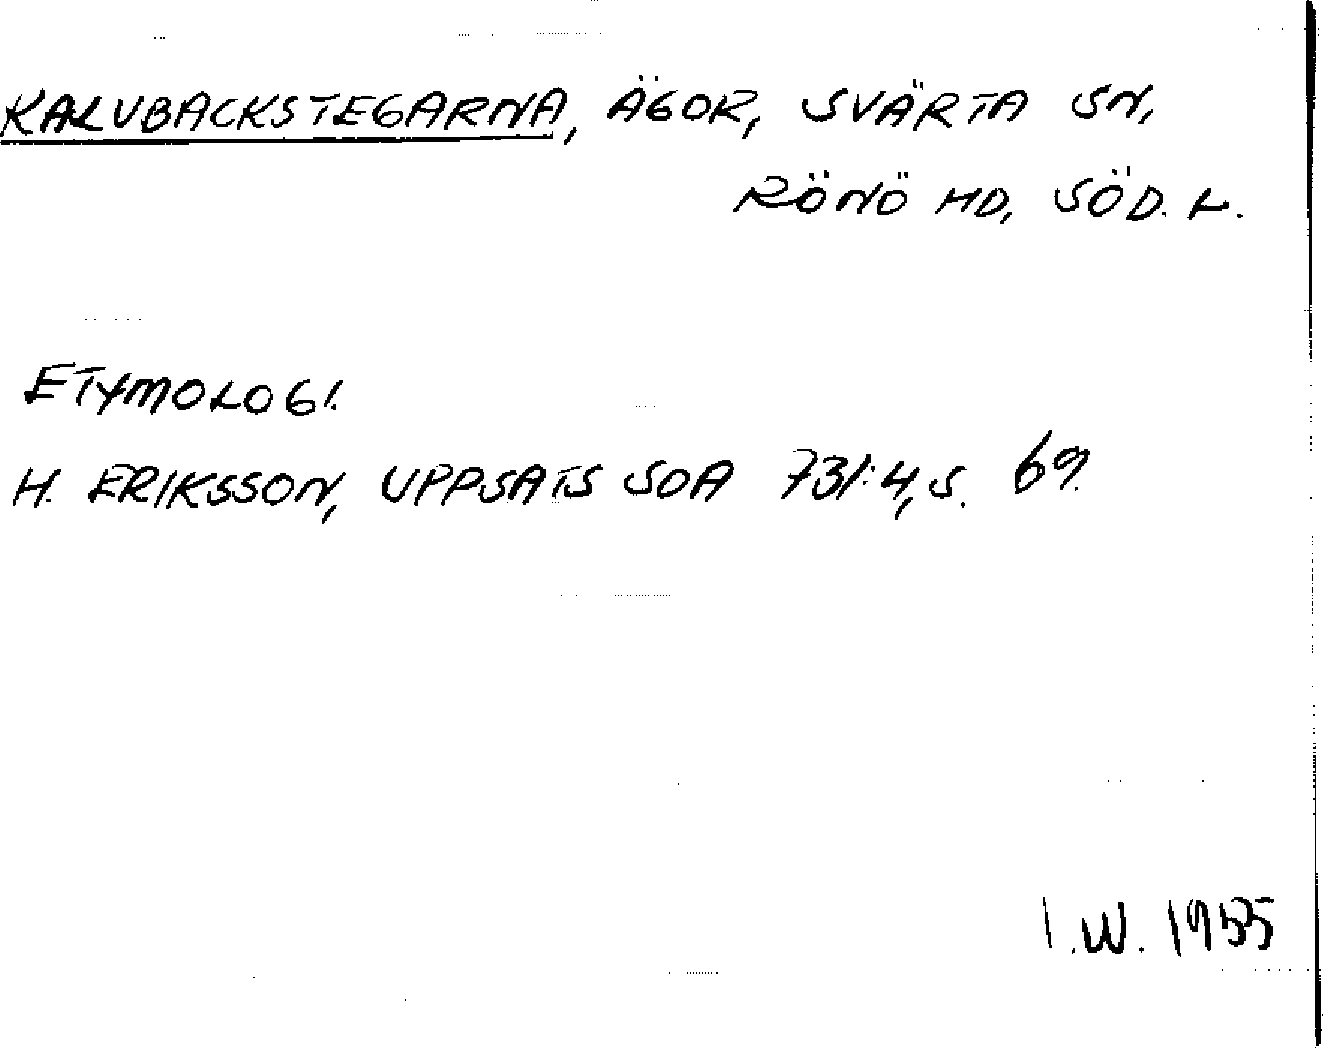 KALVBACKSTEGARNA, ÄGOR, SVÄRTA SN,
RÖNÖ HD, SÖD. L.
ETYMOLOGI.
H. ERIKSSON, UPPSATS SOA 731:4, S. 69.
I.W. 1985